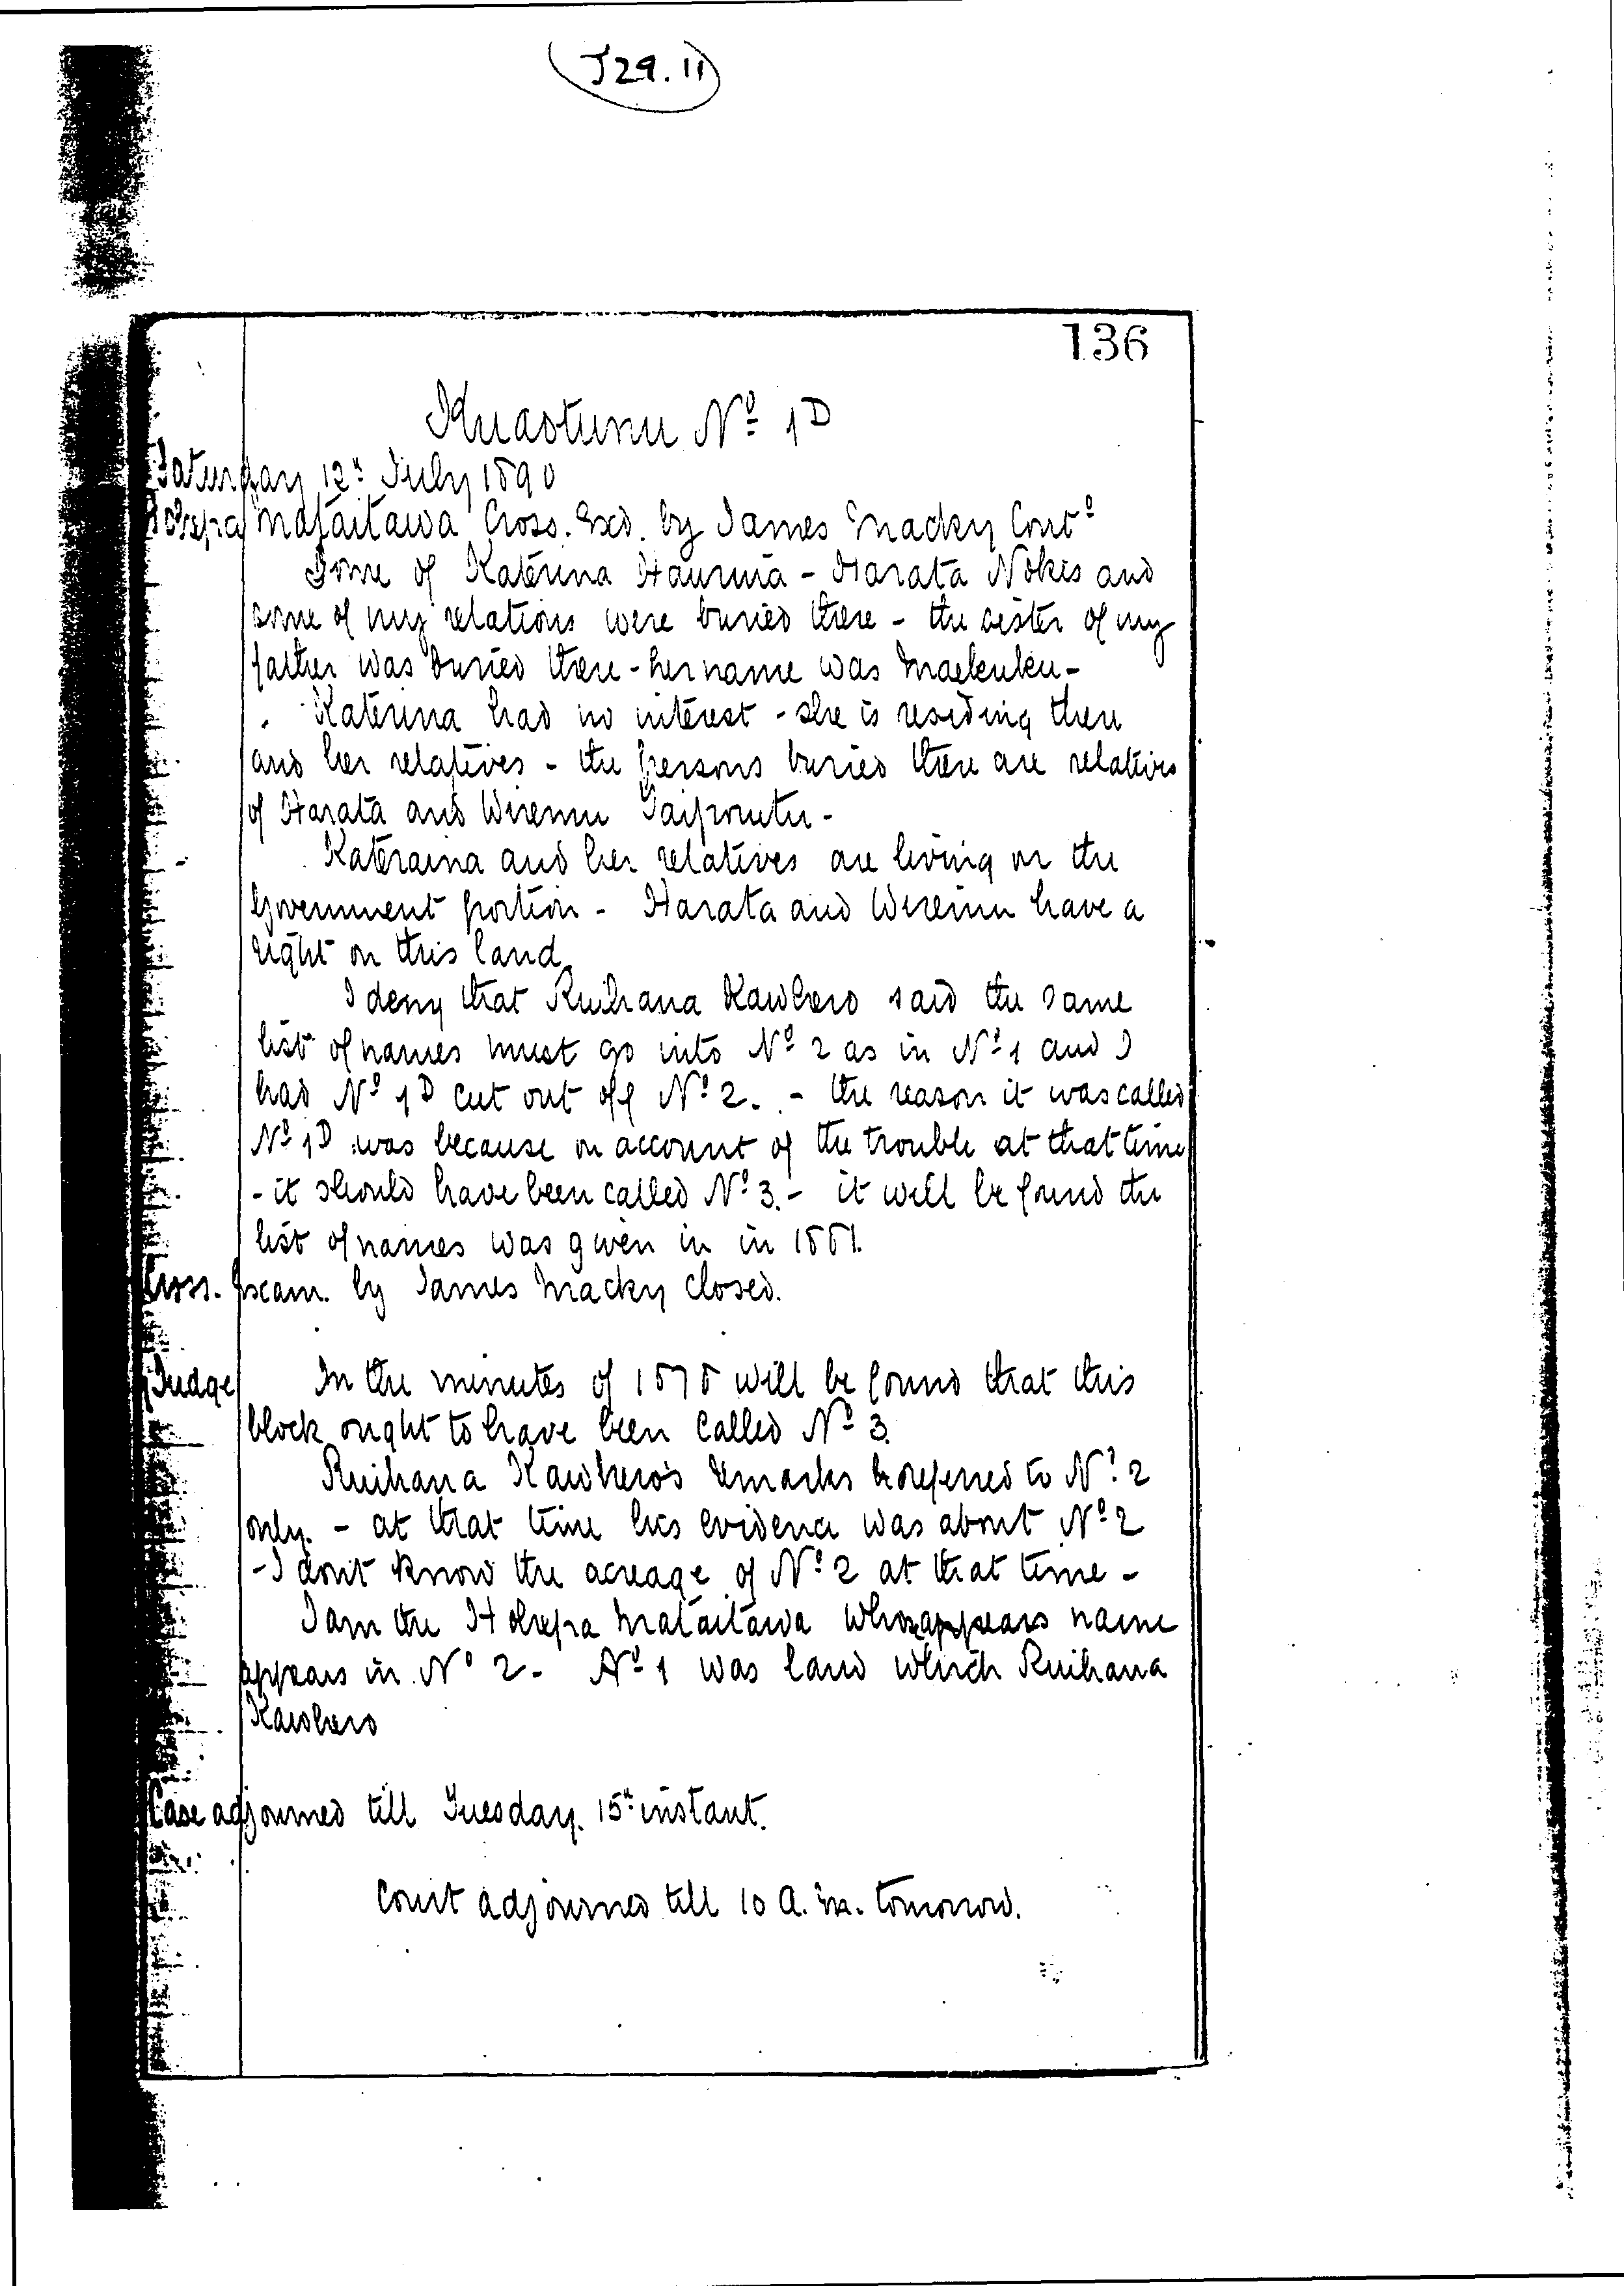 J29.11
136
Kuaotunu No. 1D
Saturday 12th July 1890
Hohepa Mataitawa Cross. Exd. by James Macky Contd
Some of Katerina Hauruia - Harata Nokes and
some of my relations were buried there - the sister of my
father was buried there - her name was Maekuku -
Katerina had no interest - she is residing there
and her relatives - the persons buried there are relatives
of Harata and Wiremu Taiporutu -
Kateraina and her relatives are living on the
Government portion - Harata and Wiremu have a
right on this land.
I deny that Ruihana Kawhero said the same
list of names must go into No. 2 as in No. 1 and I
had No. 1D cut out off No. 2. - the reason it was called
No. 1D was because on account of the trouble at that time
- it should have been called No. 3. - it will be found the
list of names was given in in 1881.
Cross. Exam. by James Macky closed.
Judge In the minutes of 1878 will be found that this
block ought to have been called No. 3.
Ruihana Kawhero's remarks referred to No. 2
only. - at that time his evidence was about No. 2
- I don't know the acreage of No. 2 at that time -
I am the Hohepa Mataitawa whose appears name
appears in No. 2. - No. 1 was land which Ruihana
Kawhero
Case adjourned till Tuesday. 15th instant.
Court adjourned till 10 A.M. tomorrow.